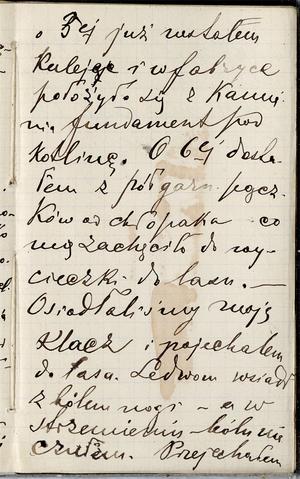 o 5ej już wstałem
kulejąc i w fabryce
położyło się z Kamie
nia fundament pod
kotlinę. O 6ej dosta
łem z pół garn. pącz
ków od chłopaka co
mię zachęciło do wy
cieczki do lasu. —
Osiodłaliśmy moją
Klacz i pojechałem
do lasa. Ledwom wsiadł
z bólem nogi — a w
strzemieniu bólu nie
czułem. Przejechałem